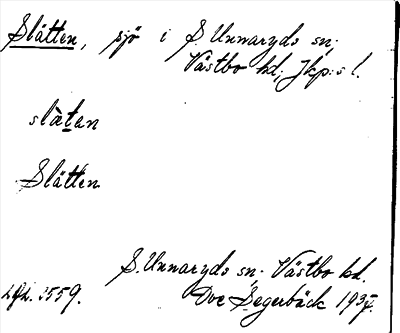 Slätten, sjö i S. Unnaryds sn,
Västbo hd, Jkp:s l.
slätan
Slätten
S. Unnaryds sn. Västbo hd.
3559. Ove Segerbäck 1937.